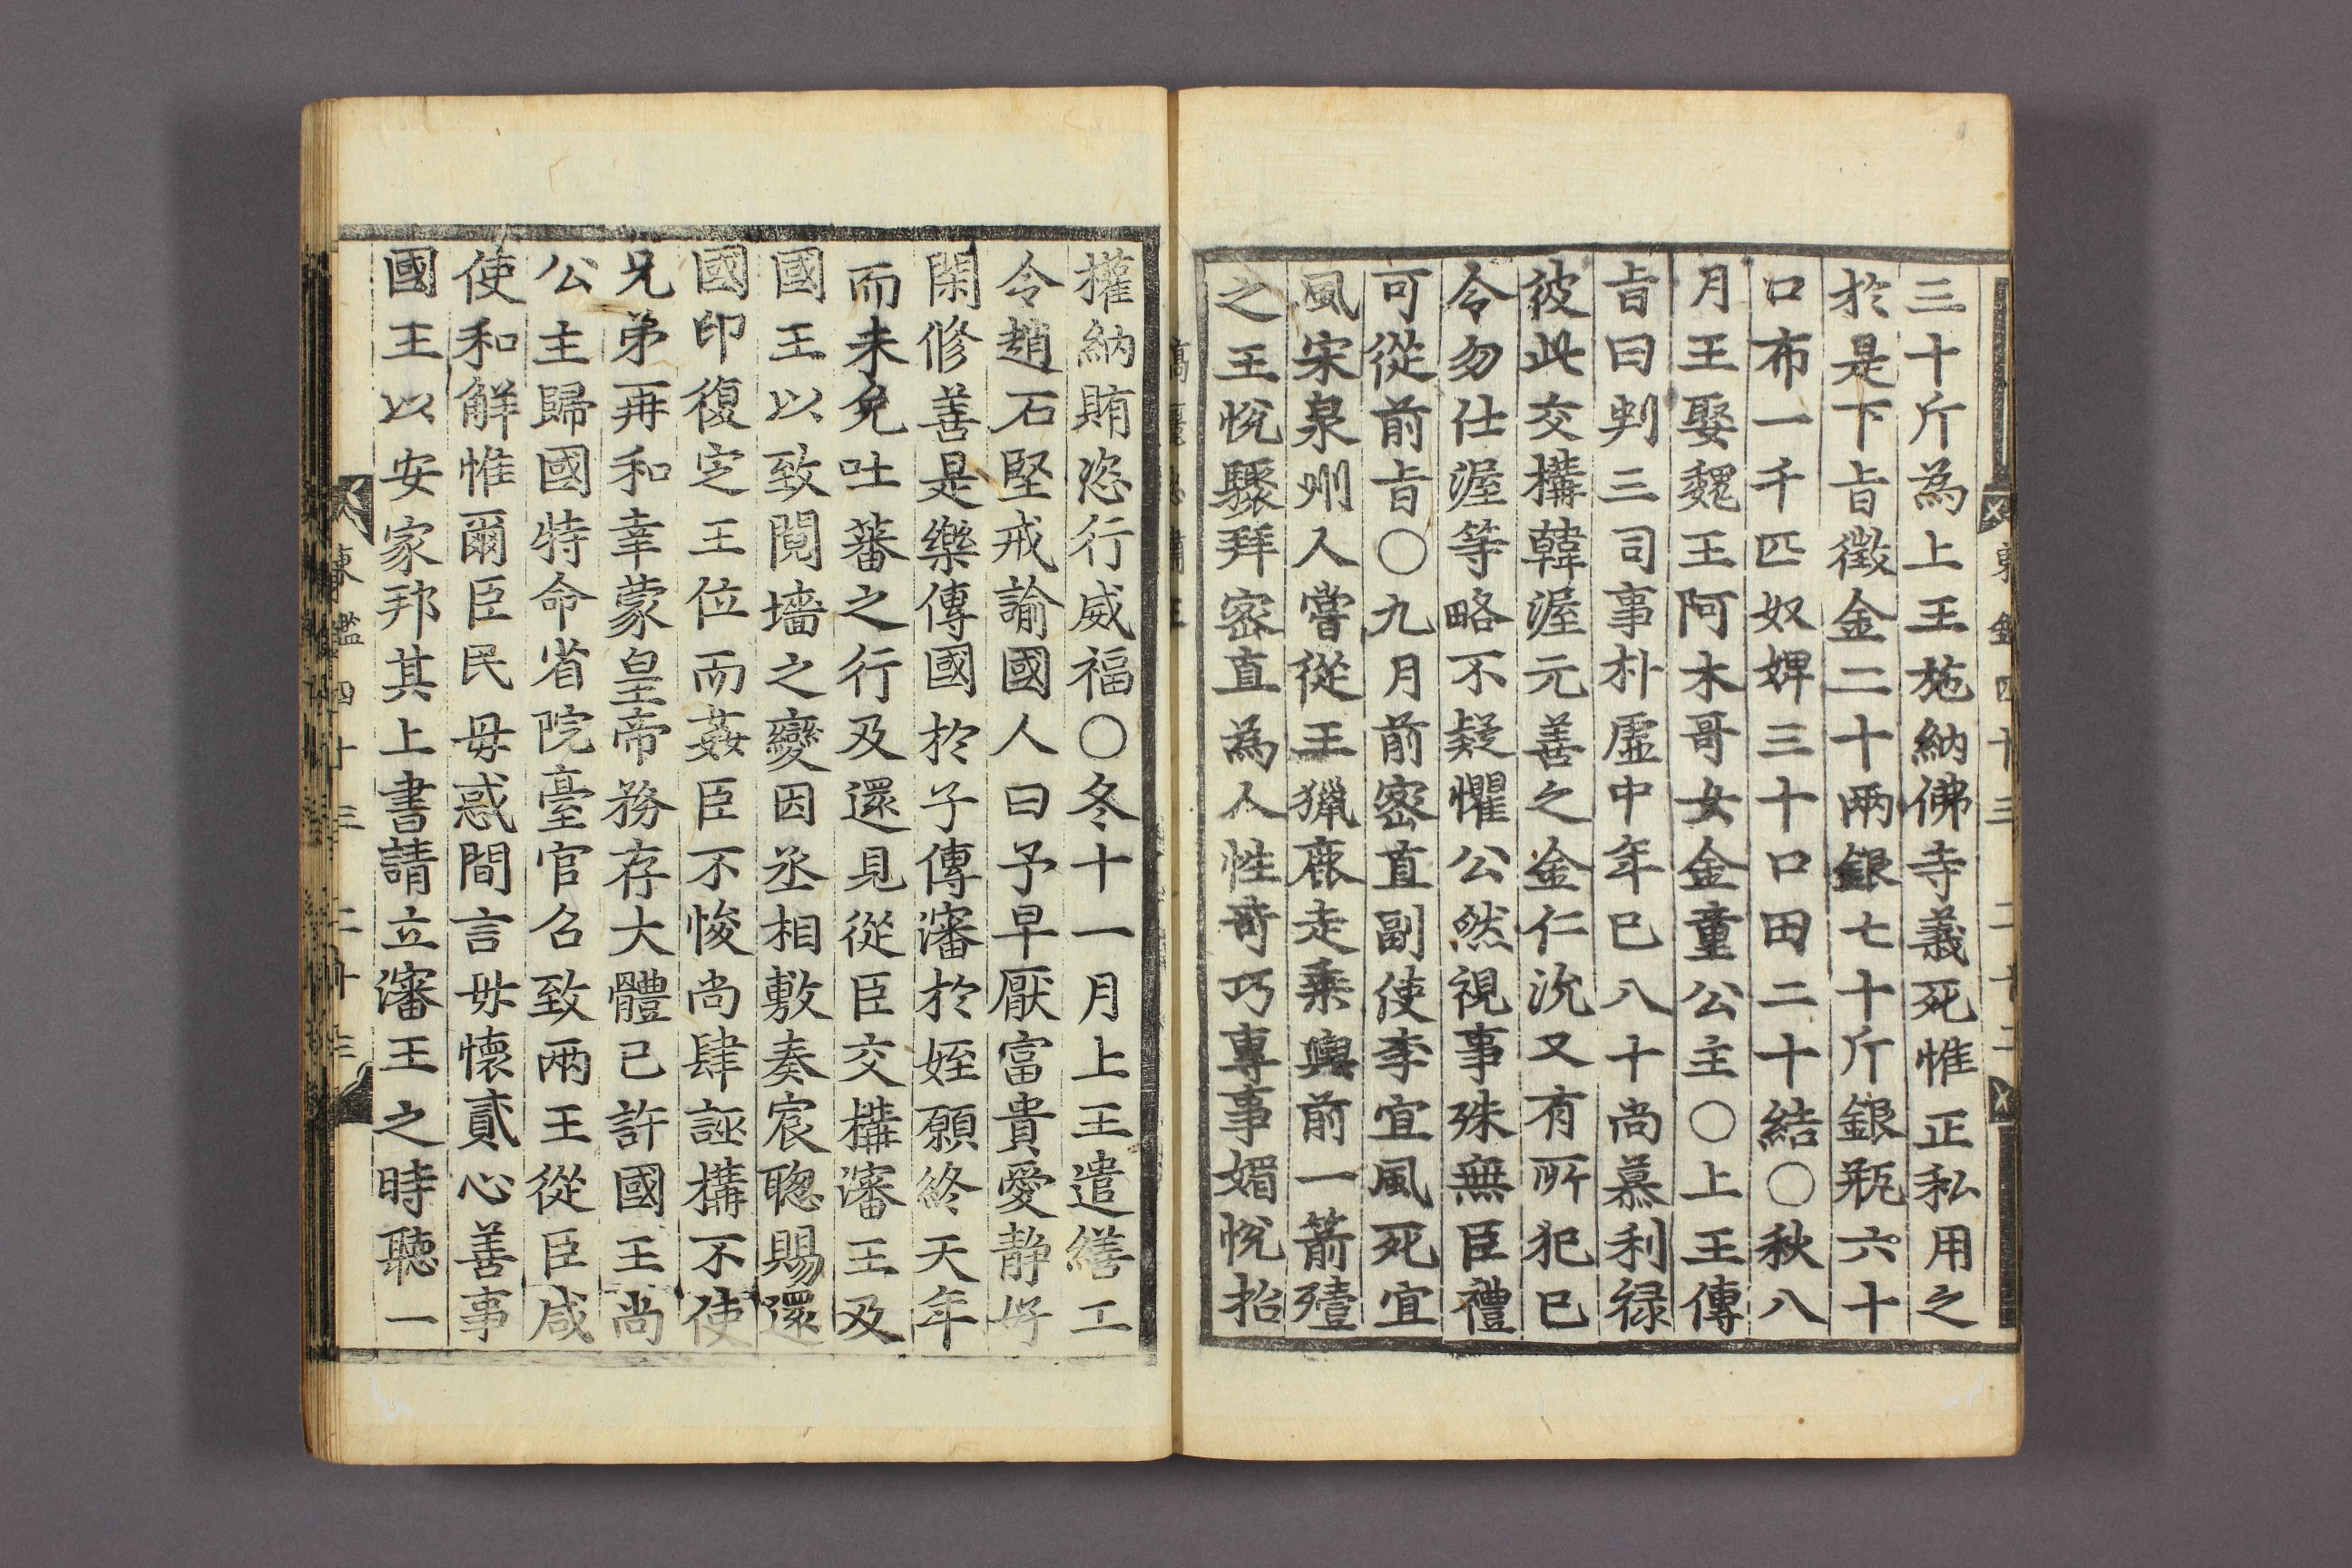 三十斤為上王施納佛寺義死惟正私用之
於是下旨徵金二十兩銀七十斤銀瓶六十
口布一千匹奴婢三十口田二十結○秋八
月王娶魏王阿木哥女金童公主○上王傳
旨曰判三司事朴虛中年已八十尚慕利祿
彼此交構韓渥元善之金仁沇又有所犯已
令勿仕渥等略不疑懼公然視事殊無臣禮
可從前旨○九月前密直副使李宜風死宜
風宋泉州人嘗從王獵鹿走乘輿前一箭殪
之王悅驟拜密直為人性奇巧專事媚悅招
權納賄恣行威福○冬十一月上王遣繕工
令趙石堅戒諭國人曰予早厭富貴愛靜好
閑修善是樂傳國於子傳瀋於姪願終天年
而未免吐蕃之行及還見從臣交構瀋王及
國王以致鬩墻之變因丞相敷奏宸聰賜還
國印復定王位而姦臣不悛尚肆誣構不使
兄弟再和幸蒙皇帝務存大體已許國王尚
公主歸國特命省院臺官召致兩王從臣咸
使和解惟爾臣民毋惑間言毋懷貳心善事
國王以安家邦其上書請立瀋王之時聽一
東鑑四十三 二十三